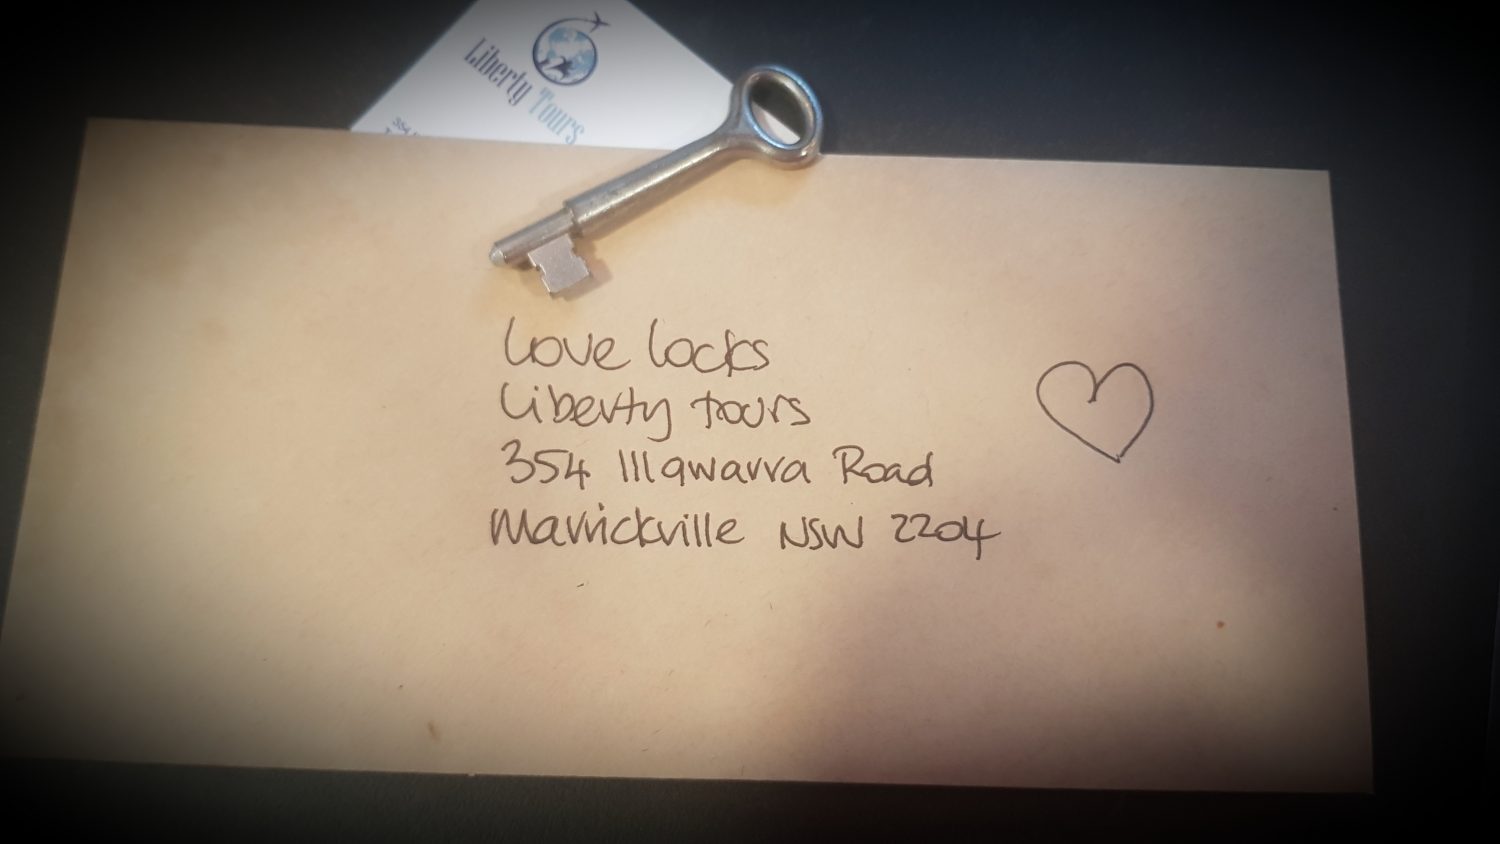 Liberty Tours
354
Love locks
Liberty tours
354 Illawarra Road
Marrickville NSW 2204